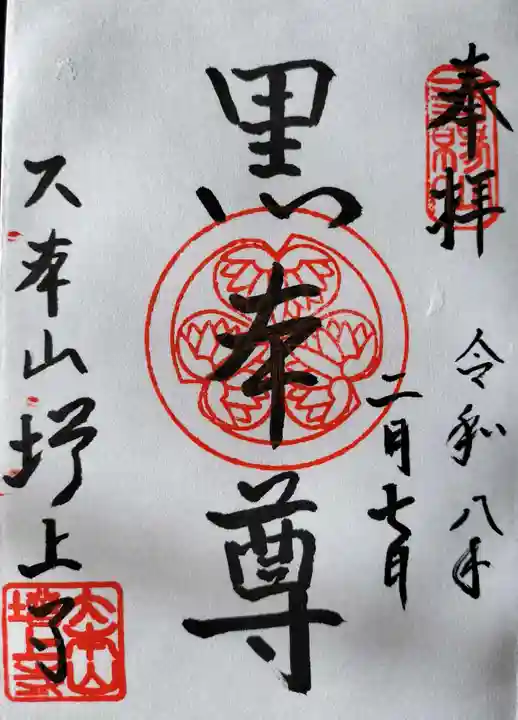 奉拝
令和八年
二月七日
黒本尊
大本山増上寺
大本山増上寺